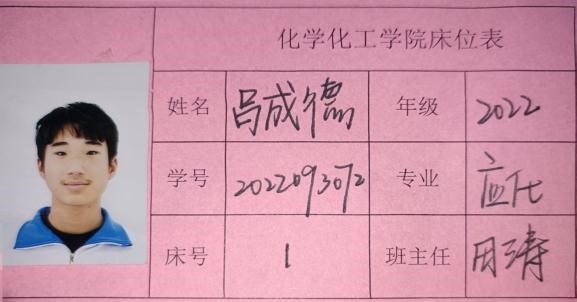 化学化工学院床位表
姓名 吕成德 年级 2022
学号 2022093072 专业 应化
床号 1 班主任 周涛